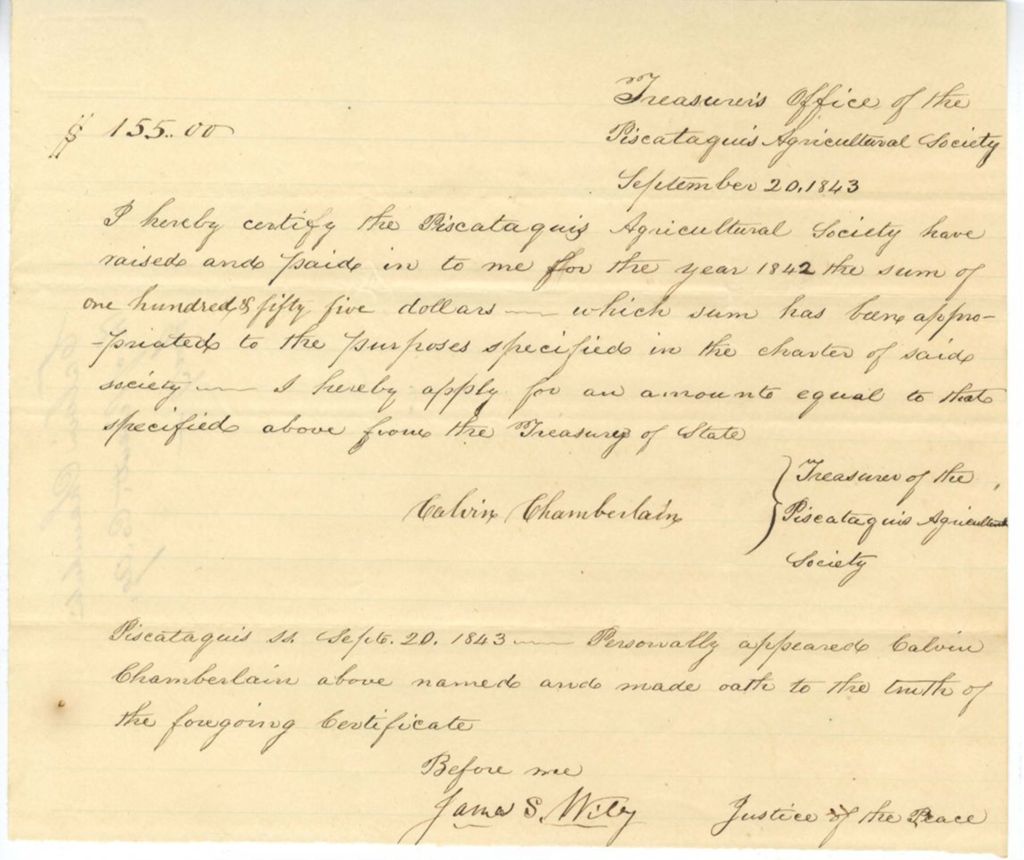 Treasurer's Office of the
$ 155.00
Piscataquis Agricultural Society
September 20, 1843
I hereby certify the Piscataquis Agricultural Society have
raised and paid in to me for the year 1842 the sum of
one hundred & fifty five dollars —— which sum has been appro-
-priated to the purposes specified in the charter of said
society —— I hereby apply for an amount equal to that
specified above from the Treasury of State
Calvin Chamberlain } Treasurer of the
Piscataquis Agricultural
Society
Piscataquis ss. Sept. 20. 1843 —— Personally appeared Calvin
Chamberlain above named and made oath to the truth of
the foregoing Certificate
Before me
James S. Wiley Justice of the Peace